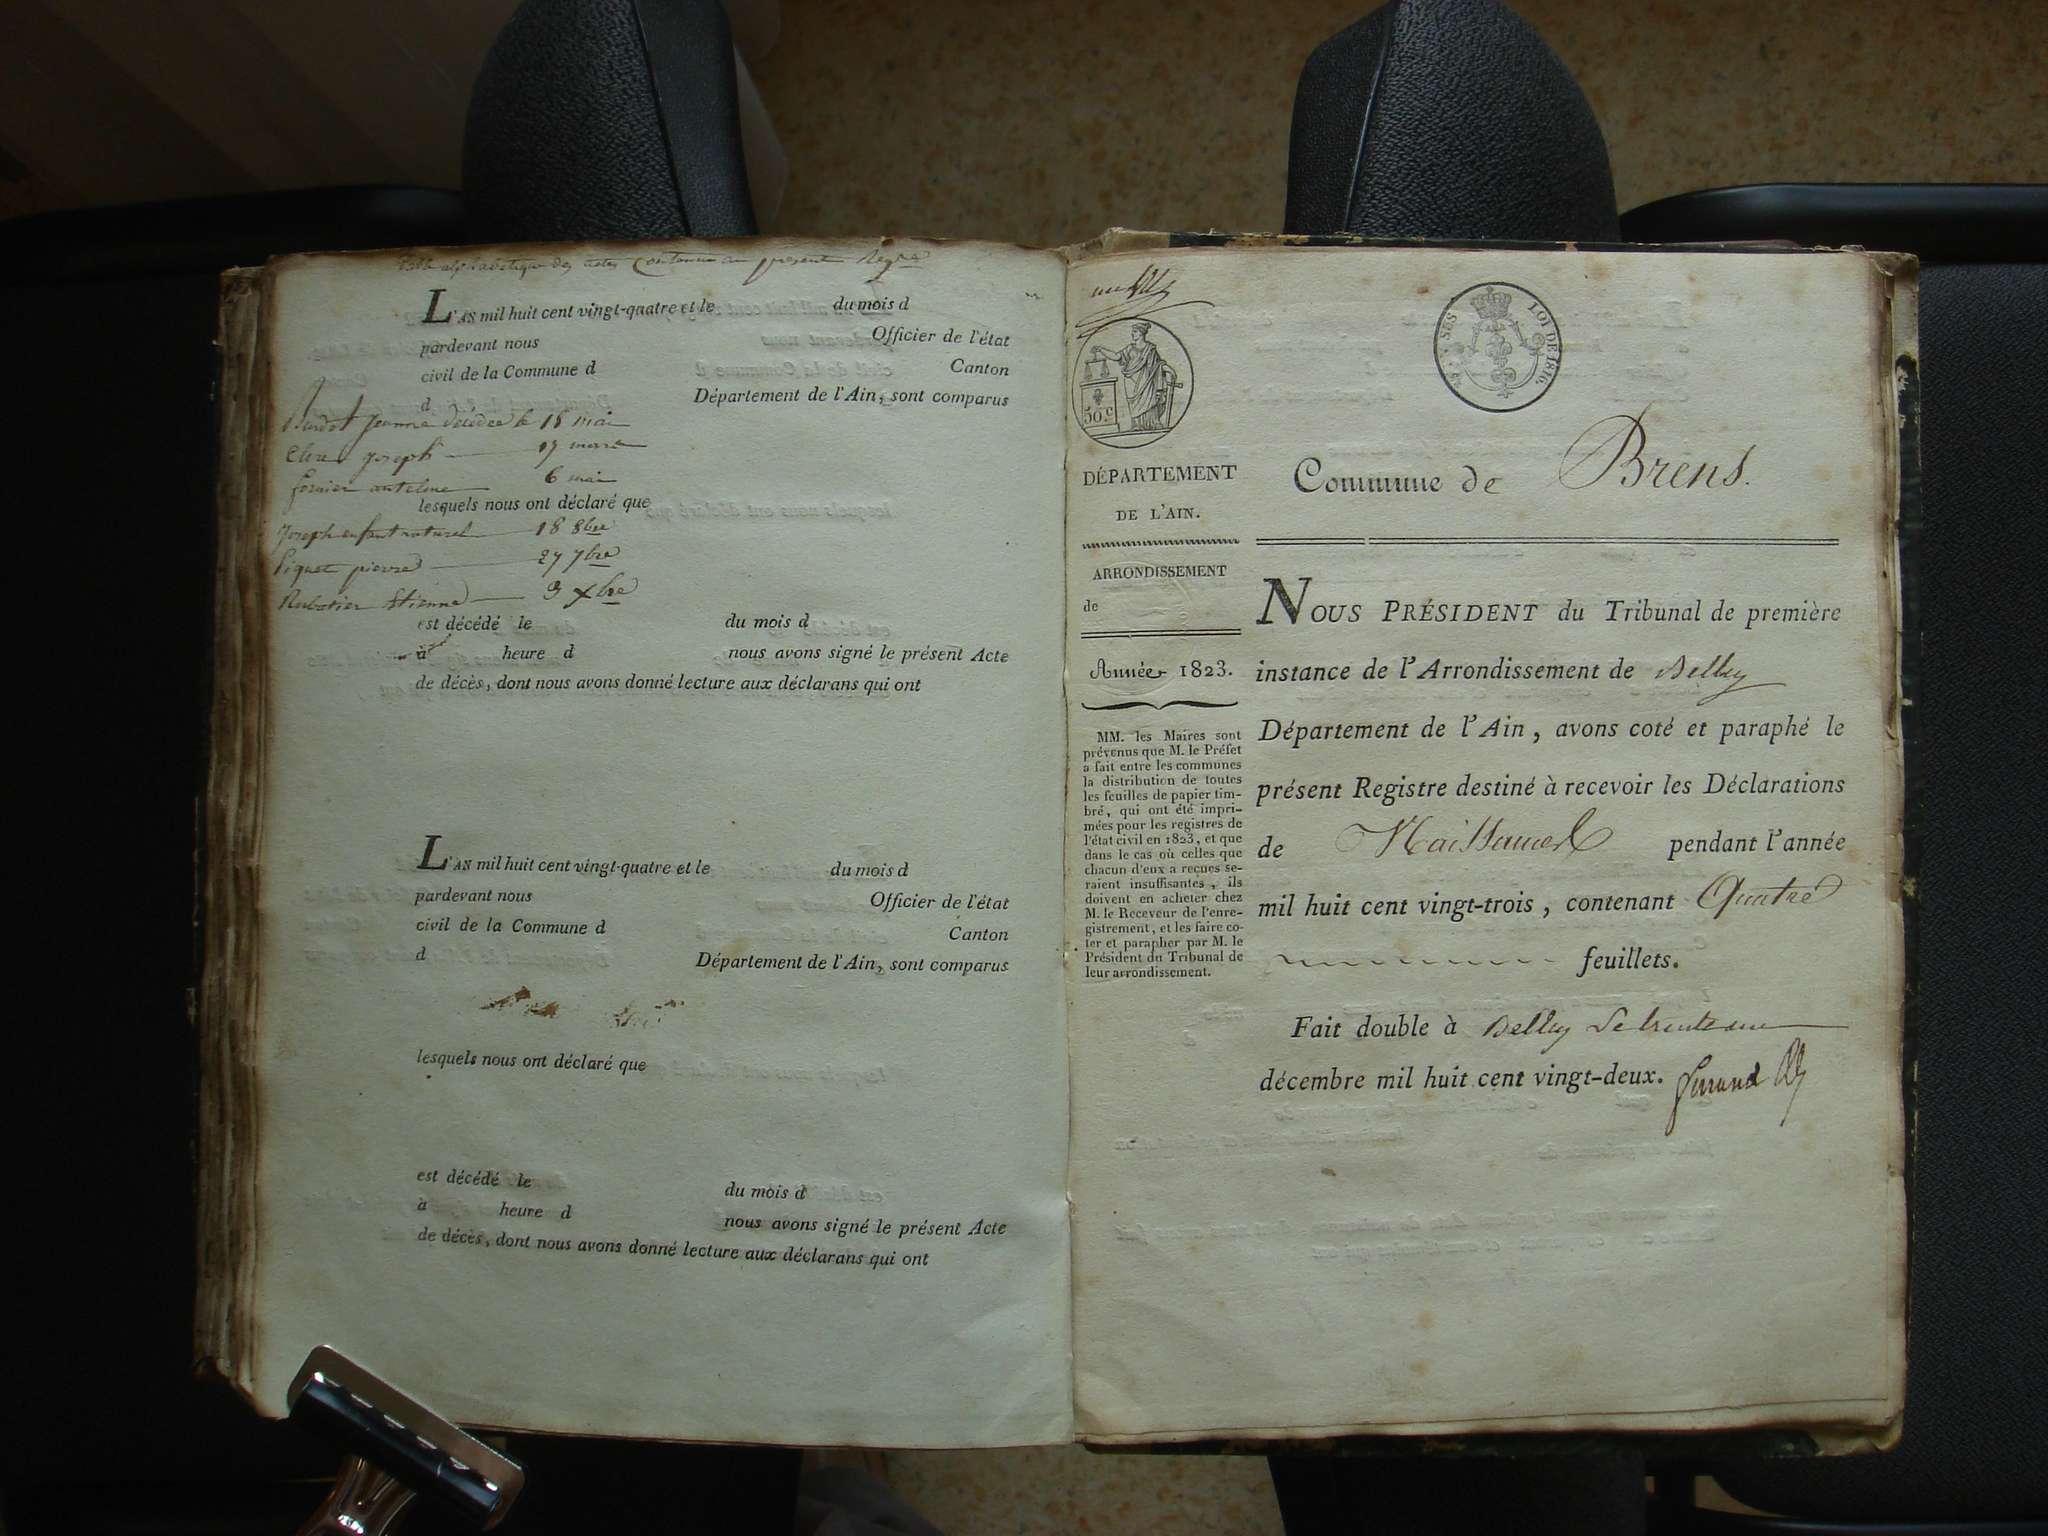 Table alphabetique des actes Contenu au present Reg.re
L'AN mil huit cent vingt-quatre et le du mois d
pardevant nous Officier de l'état
civil de la Commune d Canton
d Département de l'Ain, sont comparus
Burdet Jeanne décédée le 18 mai
Joseph 17 mars
fornier antelme 6 mai
lesquels nous ont déclaré que
Joseph enfant naturel 18 8bre
Piquet pierre 27 7bre
Rubatier Etienne 3 Xbre
est décédé le du mois d
à heure d nous avons signé le présent Acte
de décès, dont nous avons donné lecture aux déclarans qui ont
L'AN mil huit cent vingt-quatre et le du mois d
pardevant nous Officier de l'état
civil de la Commune d Canton
d Département de l'Ain, sont comparus
lesquels nous ont déclaré que
est décédé le du mois d
à heure d nous avons signé le présent Acte
de décès, dont nous avons donné lecture aux déclarans qui ont
SES LOI DE 1816.
50.c
DÉPARTEMENT
DE L'AIN.
ARRONDISSEMENT
de
Année 1823.
MM. les Maires sont
prévenus que M. le Préfet
a fait entre les communes
la distribution de toutes
les feuilles de papier tim-
bré, qui ont été impri-
mées pour les registres de
l'état civil en 1823, et que
dans le cas où celles que
chacun d'eux a reçues se-
raient insuffisantes, ils
doivent en acheter chez
M. le Receveur de l'enre-
gistrement, et les faire co-
ter et parapher par M. le
Président du Tribunal de
leur arrondissement.
Commune de Brens.
NOUS PRÉSIDENT du Tribunal de première
instance de l'Arrondissement de Belley
Département de l'Ain, avons coté et paraphé le
présent Registre destiné à recevoir les Déclarations
de Naissances pendant l'année
mil huit cent vingt-trois, contenant Quatre
feuillets.
Fait double à Belley le trente un
décembre mil huit cent vingt-deux.